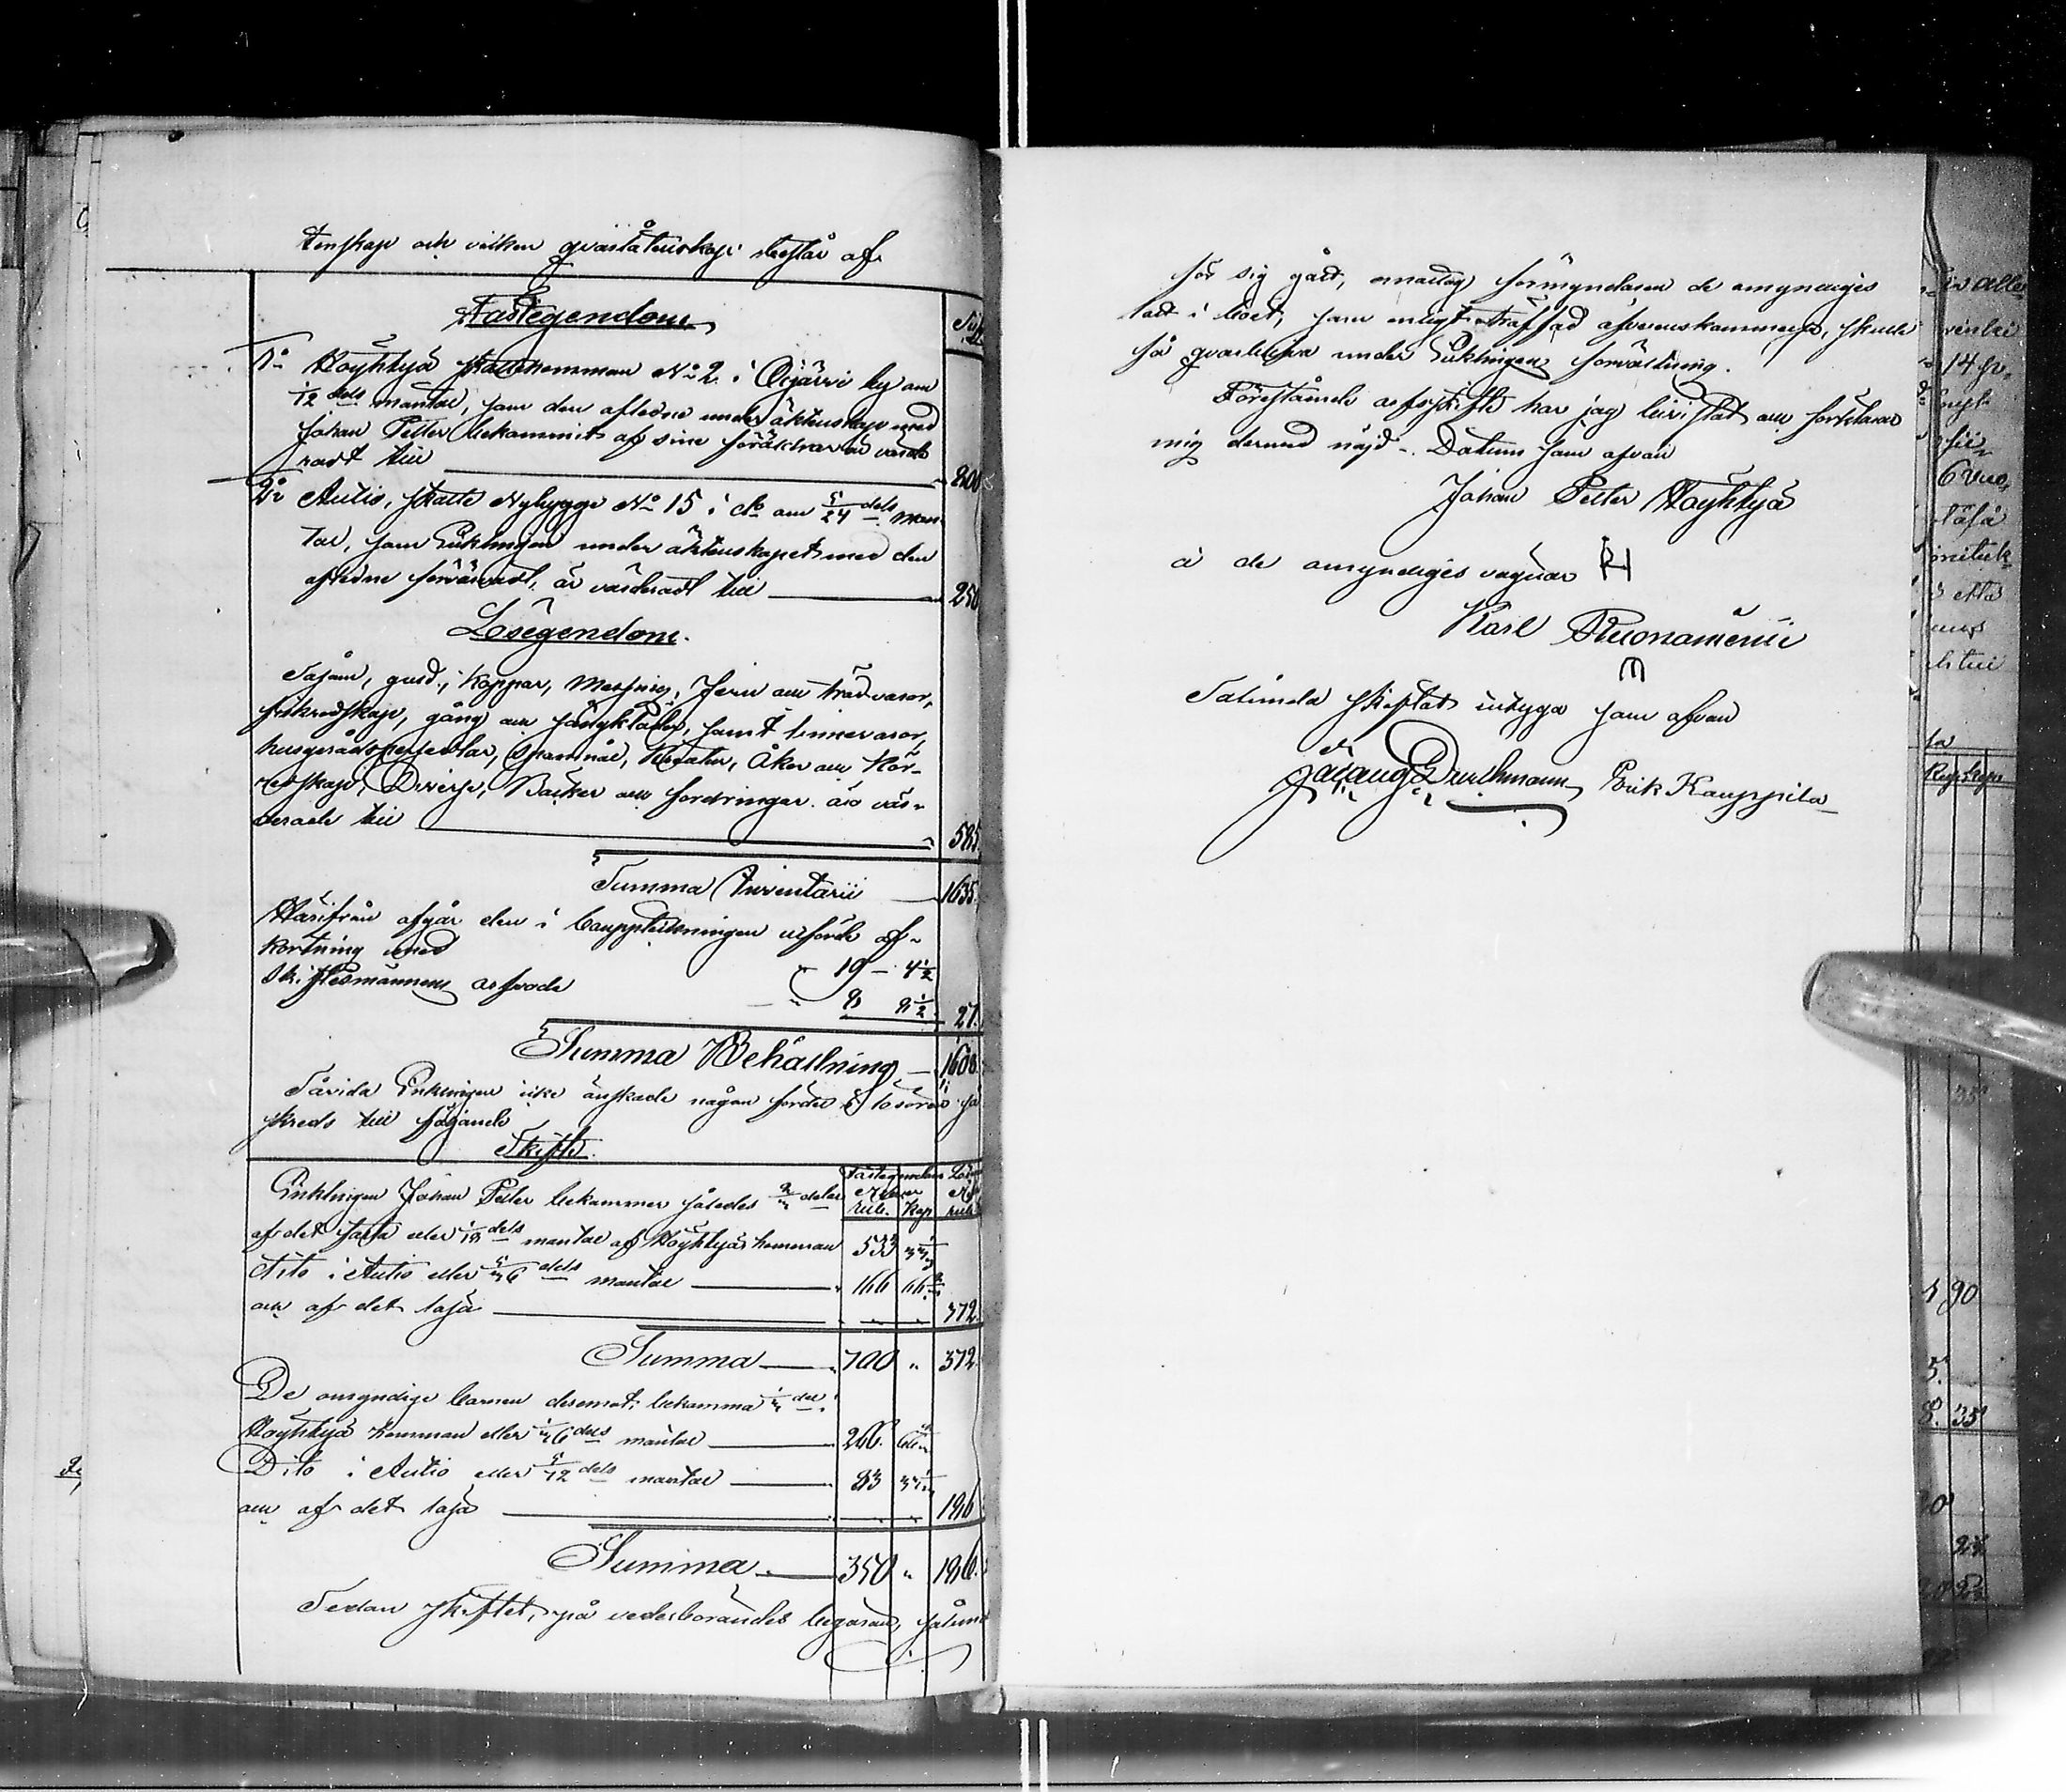 tenskap och vilken qvarlåtenskap består af.
Fastegendom
1o Höyhtyä skattehemman No 2 i Oijärvi by om
1/12 dels mantal, som den aflidne under äktenskap med
Johan Petter bekommit af sine föräldrar är värde-
radt till 800
2o Autio, skatte Nybygge No 15 i do om 5/24 dels man
tal, som Enklingen under äktenskapet med den
aflidne förvärvadt, är värderadt till 250
Lösegendom.
Såsom, guld, koppar, Messing, Jern och trädvaror,
fiskredskap, gång och sängkläder, samt linnevaror,
husgerådspersedlar, spanmål, Kreatur, Åker och Kör-
redskap, Diverse, Böcker och fordringar äro vär-
derade till 585.
Summa Inventarii 1635.
Härifrån afgår den i bouppteckningen utförde af-
kortning med 19 - 4 1/2
Skiftesmännens arfvode 8 8 1/2 27.
Summa Behållning 1608.
Såvida Enklingen icke önskade någon fördel i lösören så
skreds till följande
Skifte.
Enklingen Johan Petter bekommer således 2/3 delar
rub. Kop
af det fasta eller 1/18 dels mantal af Höyhtyä hemman 533 33 1/3
Dito i Autio eller 5/36 dels mantal 166 66 2/3
och af det lösa 372.
Summa 700 " 372.
De omyndige barnen deremot bekomma 1/3 del i
Höyhtyä hemman eller 1/36 dels mantal 266. 66 2/3
Dito i Autio eller 5/72 dels mantal 83 33 1/3
och af det lösa 186
Summa 350 " 186.
Sedan skiftet, på vederbörandes begäran, sålund
för sig gått, emottog förmyndaren de omyndiges
lott i boet, som enligt träffad öfverenskommelse, skulle
få qvarblifva under Enklingens förvaltning.
Förestående arfskifte har jag bevistat och förklarar
mig dermed nöjd. Datum som ofvan
Johan Petter Höyhtyä
å de omyndiges vägnar
Karl Ruonaniemi
Sålunda skiftat intyga som ofvan
Erik Kauppila